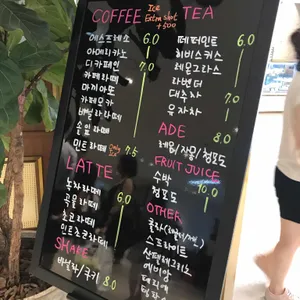 COFFEE
Ice
Extra shot
+500
에스프레소 6.0
아메리카노
디카페인 7.0
카페라떼
마끼아또
카페모카
바닐라라떼
민트라떼 Only ice 7.5
LATTE
녹차라떼 7.0
곡물라떼
초코라떼
민트초코라떼
SHAKE
바닐라/쿠키 8.0
TEA
페퍼민트 6.0
히비스커스
레몬그라스
라벤더
대추차 7.0
유자차
ADE 8.0
레몬/자몽/청포도
FRUIT JUICE
수박 10.0
청포도
OTHER
스프라이트
산펠레그리노
에비앙
페리에